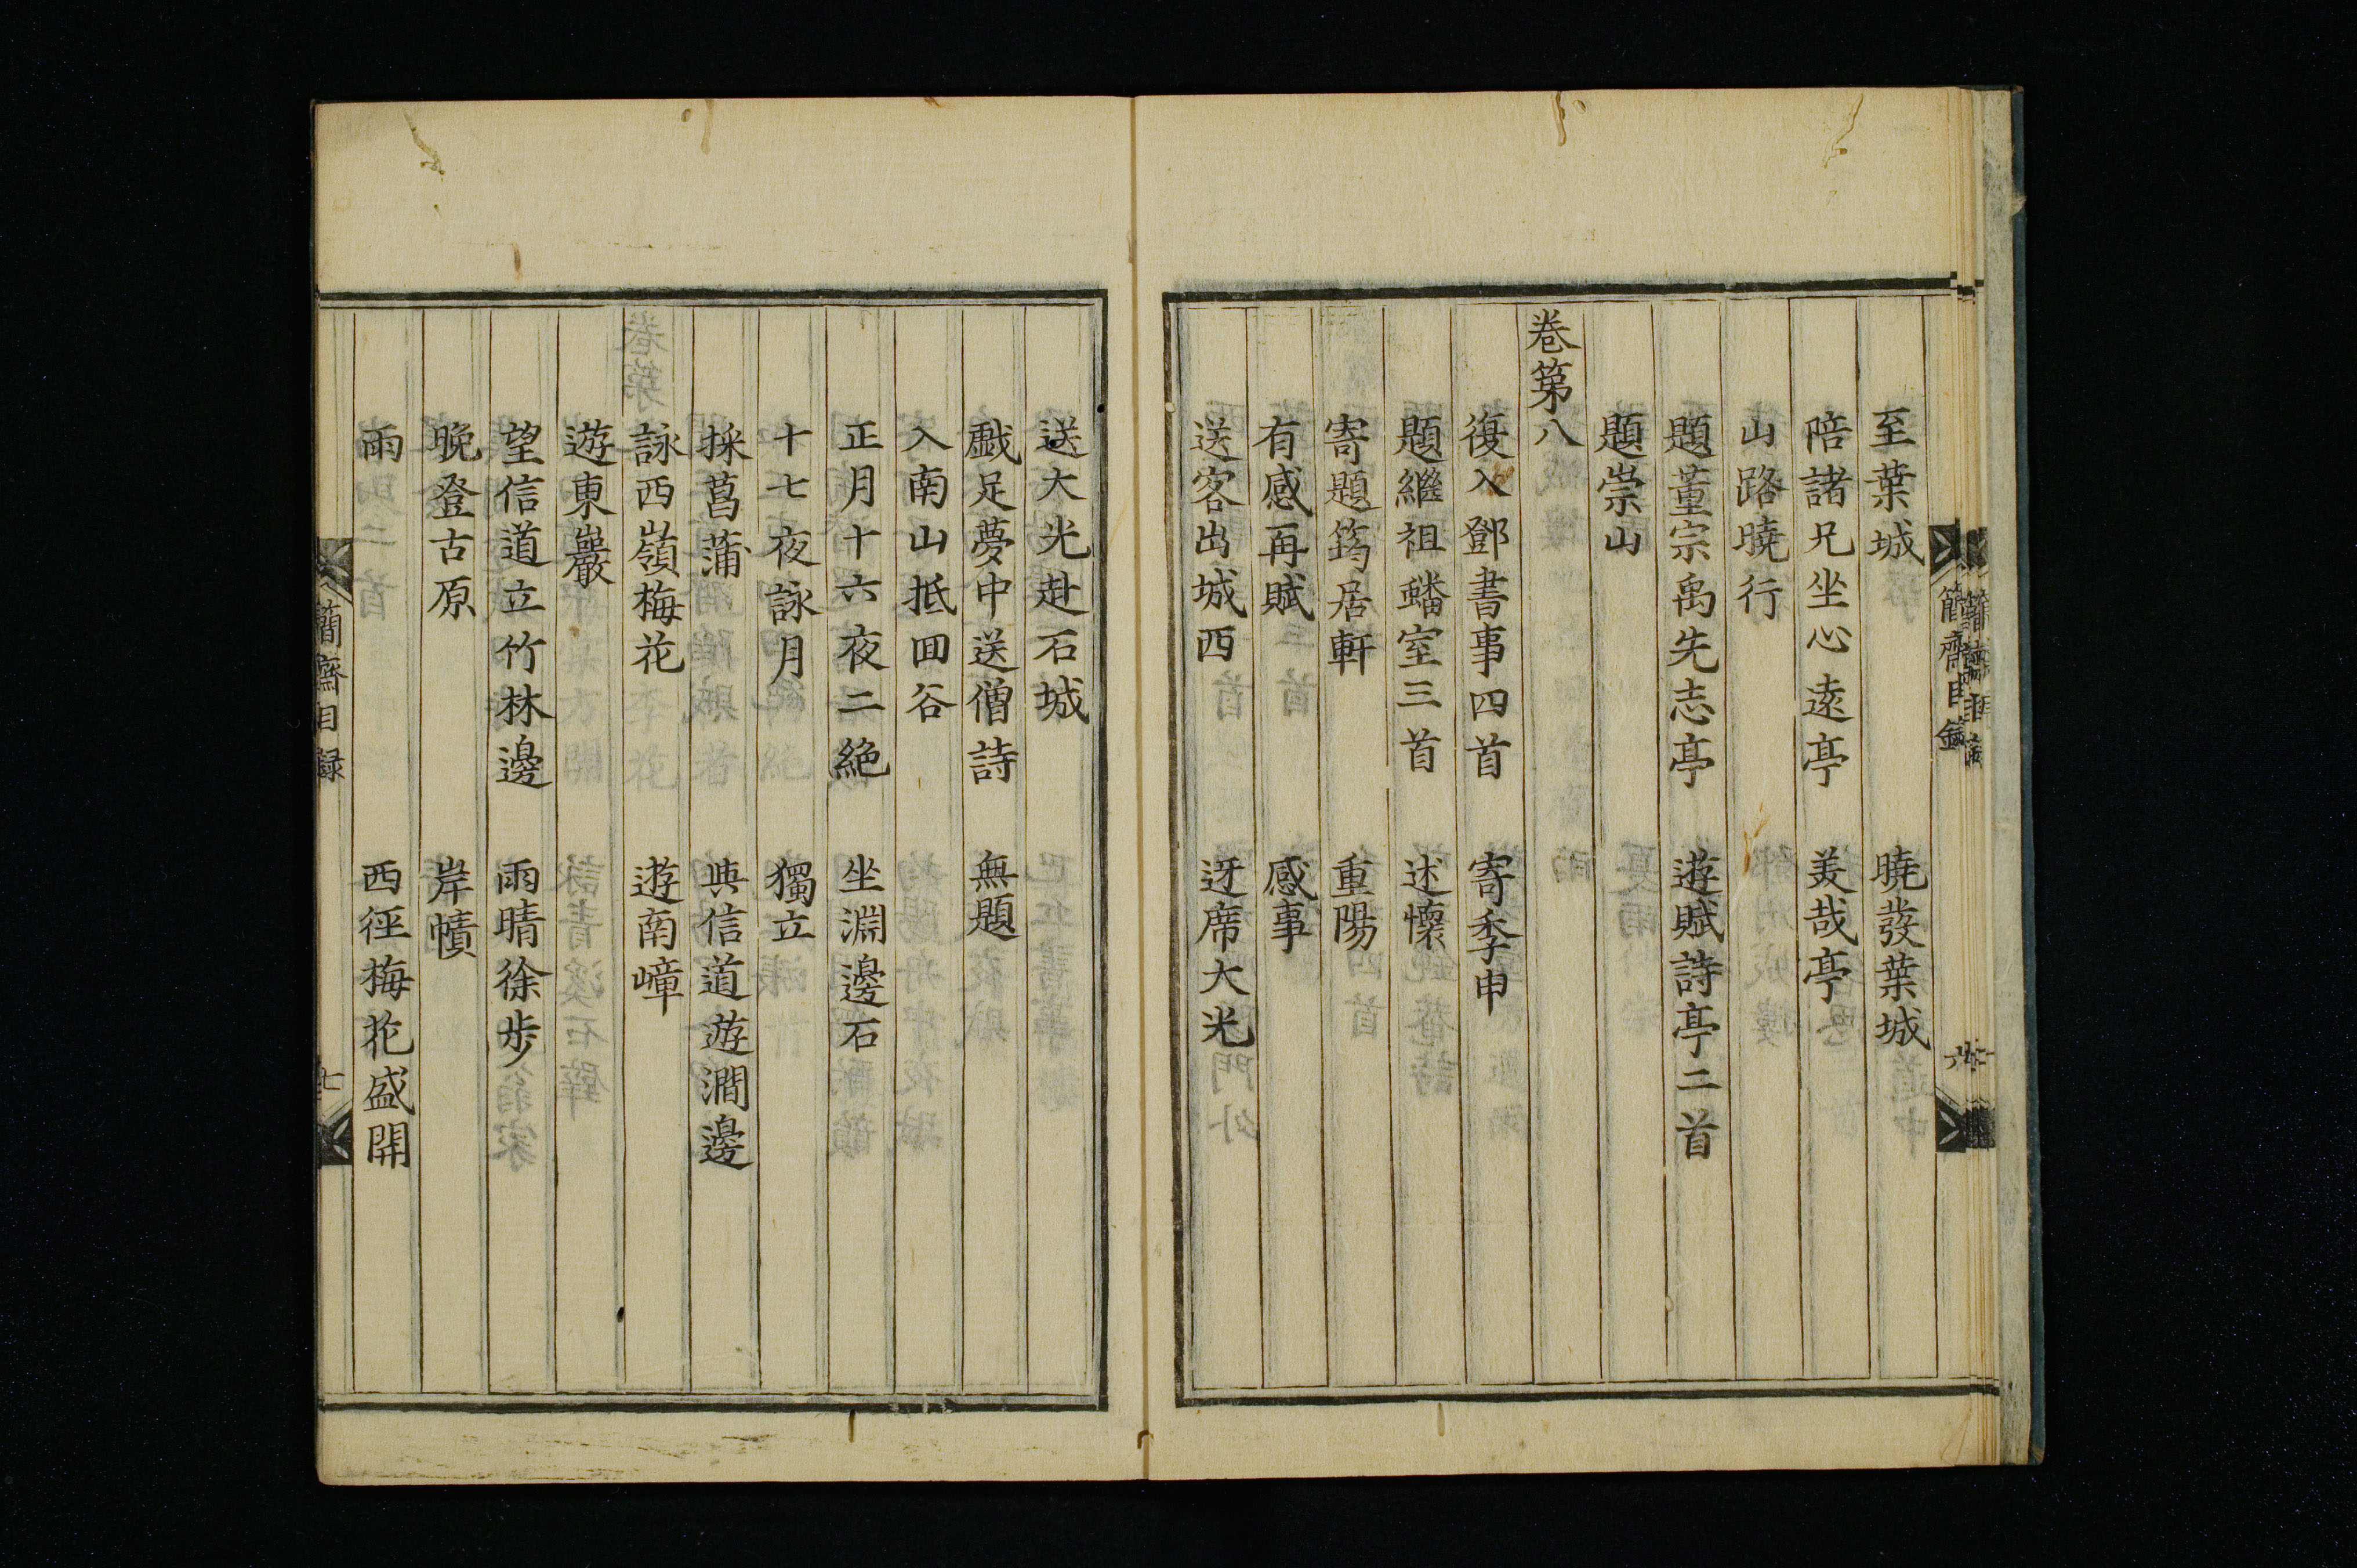 至葉城　曉發葉城
陪諸兄坐心遠亭　美哉亭
山路曉行
題董宗禹先志亭　遊賦詩亭二首
題崇山
卷第八
復入鄧書事四首　寄季申
題繼祖蟠室三首　述懷
寄題筠居軒　重陽
有感再賦　感事
送客出城西　迓席大光
送大光赴石城
戲足夢中送僧詩　無題
入南山抵回谷
正月十六夜二絶　坐澗邊石
十七夜詠月　獨立
採菖蒲　與信道遊澗邊
詠西嶺梅花　遊南嶂
遊東巖
望信道立竹林邊　雨晴徐步
晩登古原　岸幘
雨　西徑梅花盛開
簡齋目録　七